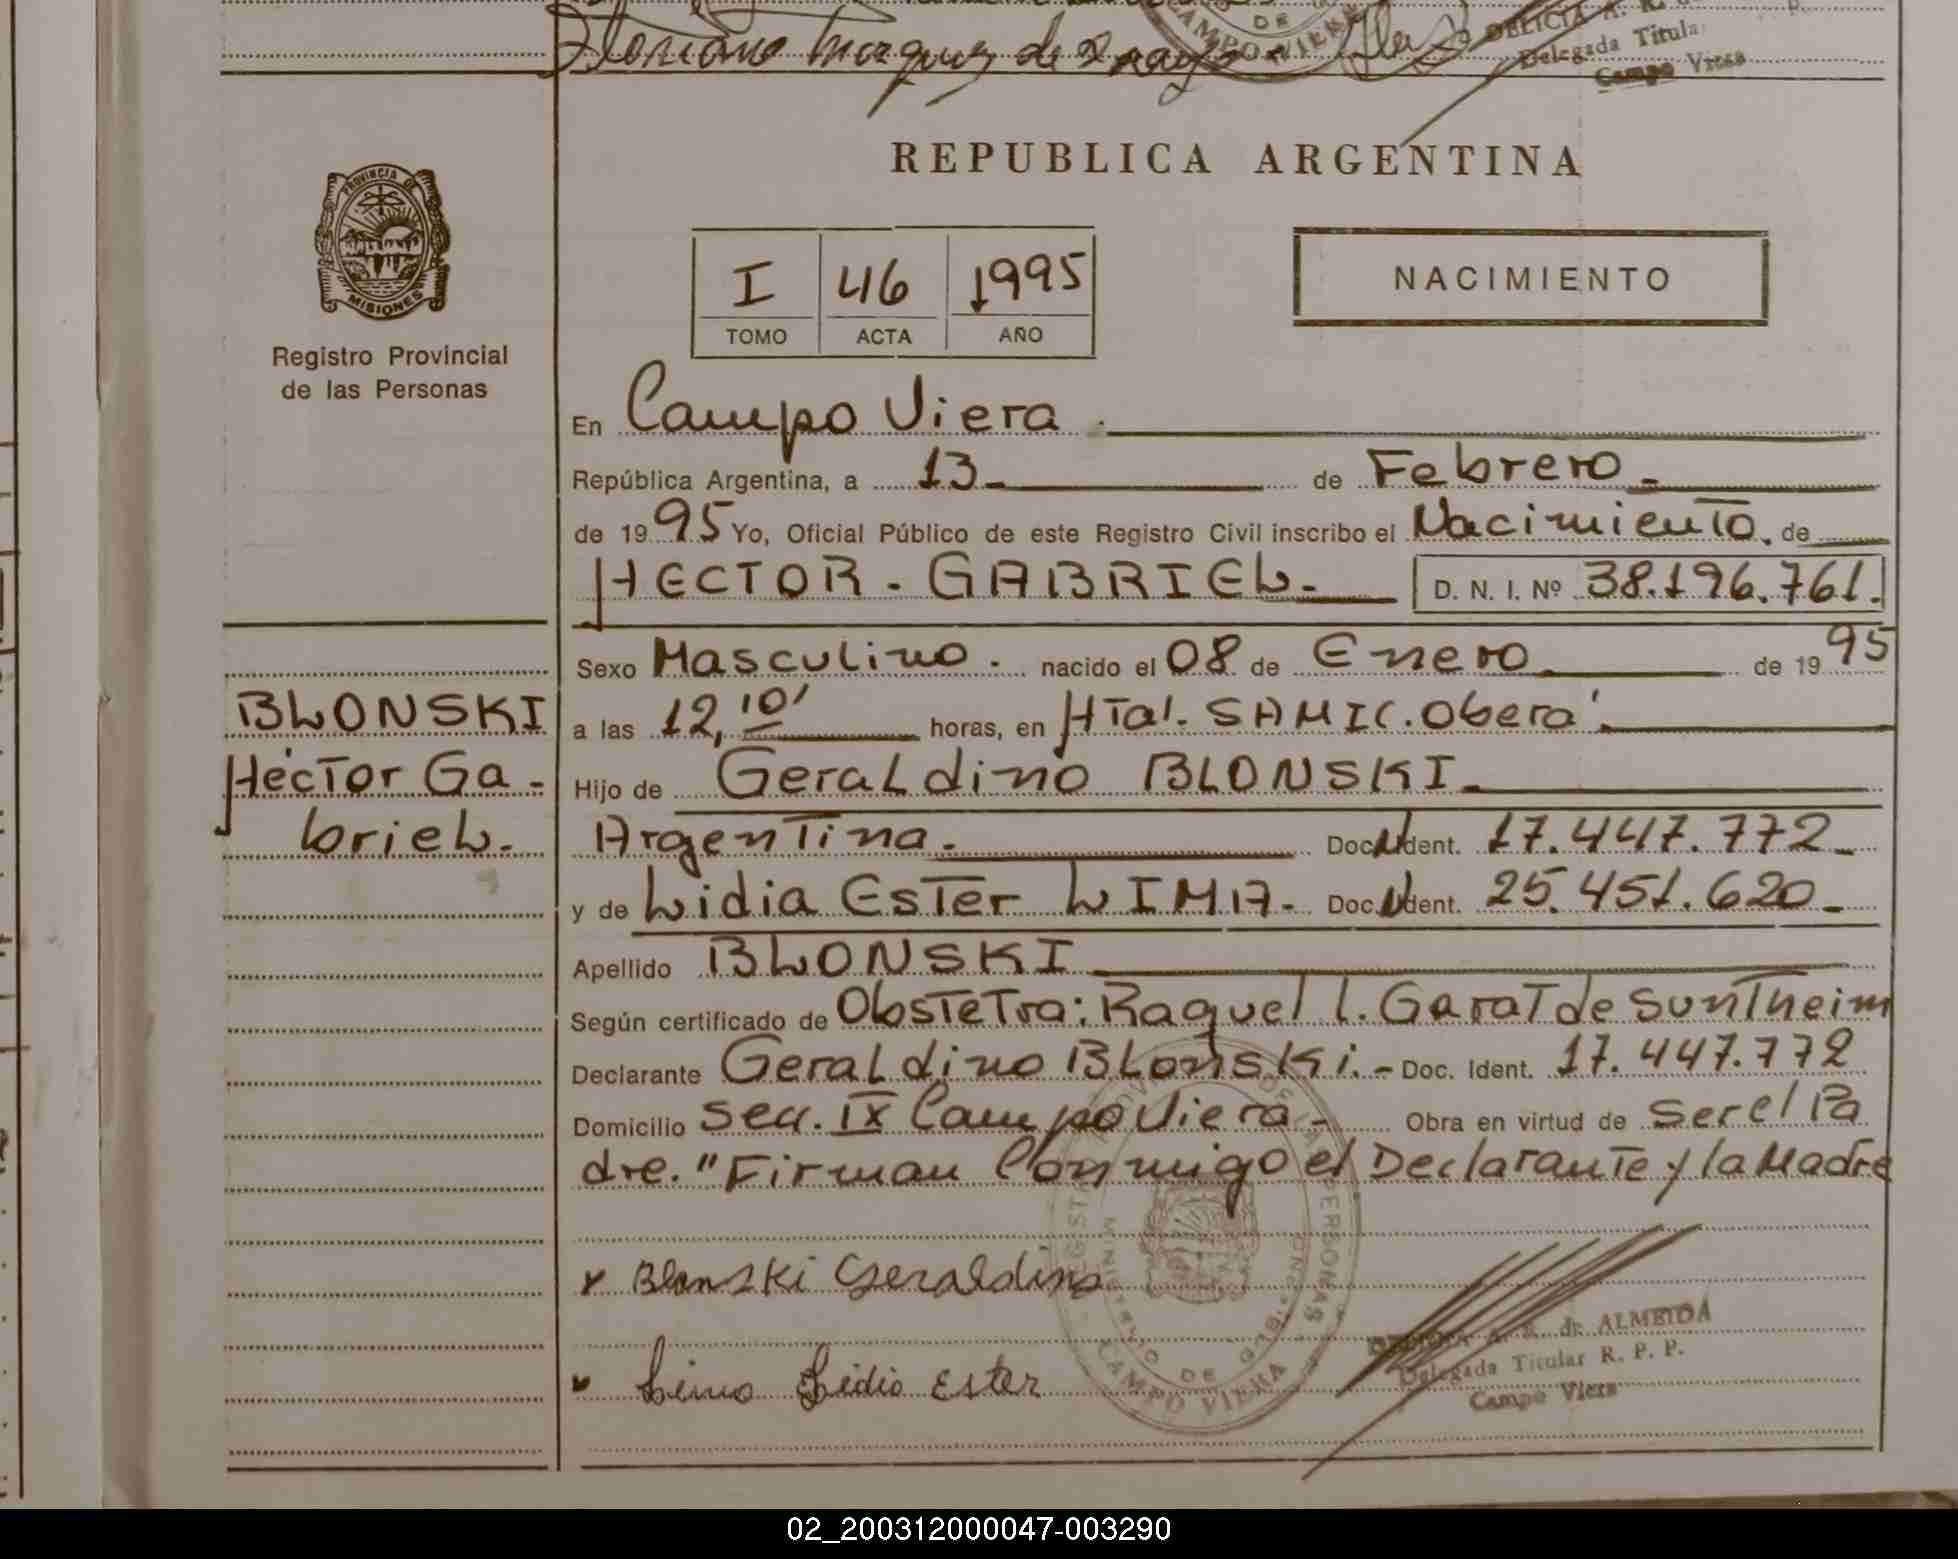 Marquez de
DE
CAMPO VIERA
Delegada Titular
Campo Viera
PROVINCIA DE
MISIONES
Registro Provincial
de las Personas
REPUBLICA ARGENTINA
I 46 1995
TOMO ACTA AÑO
NACIMIENTO
En Campo Viera.
República Argentina, a 13 de Febrero
de 1995 Yo, Oficial Público de este Registro Civil inscribo el Nacimiento. de
HECTOR - GABRIEL- D. N. I. Nº 38.196.761.
Sexo Masculino. nacido el 08 de Enero de 1995
BLONSKI
Hector Ga-
briel.
a las 12,10' horas, en Htal. SAMIC. Oberá.
Hijo de Geraldino BLONSKI
Argentina. Doc. Ident. 17.447.772-
y de Lidia Ester LIMA- Doc. Ident. 25.451.620-
Apellido BLONSKI
Según certificado de Obstetra: Raquel l. Garat de Suntheim
Declarante Geraldino BLonski.- Doc. Ident. 17.447.772
Domicilio Secc. IX Campo Viera- Obra en virtud de Ser el Pa
dre. "Firman Conmigo el Declarante y la Madre
x Blonski Geraldino
Lima Lidia Ester
REGISTRO PROVINCIAL DE LAS PERSONAS
MINISTERIO DE GOBIERNO
CAMPO VIERA
A. R. de ALMEIDA
Delegada Titular R. P. P.
Campo Viera
02_200312000047-003290